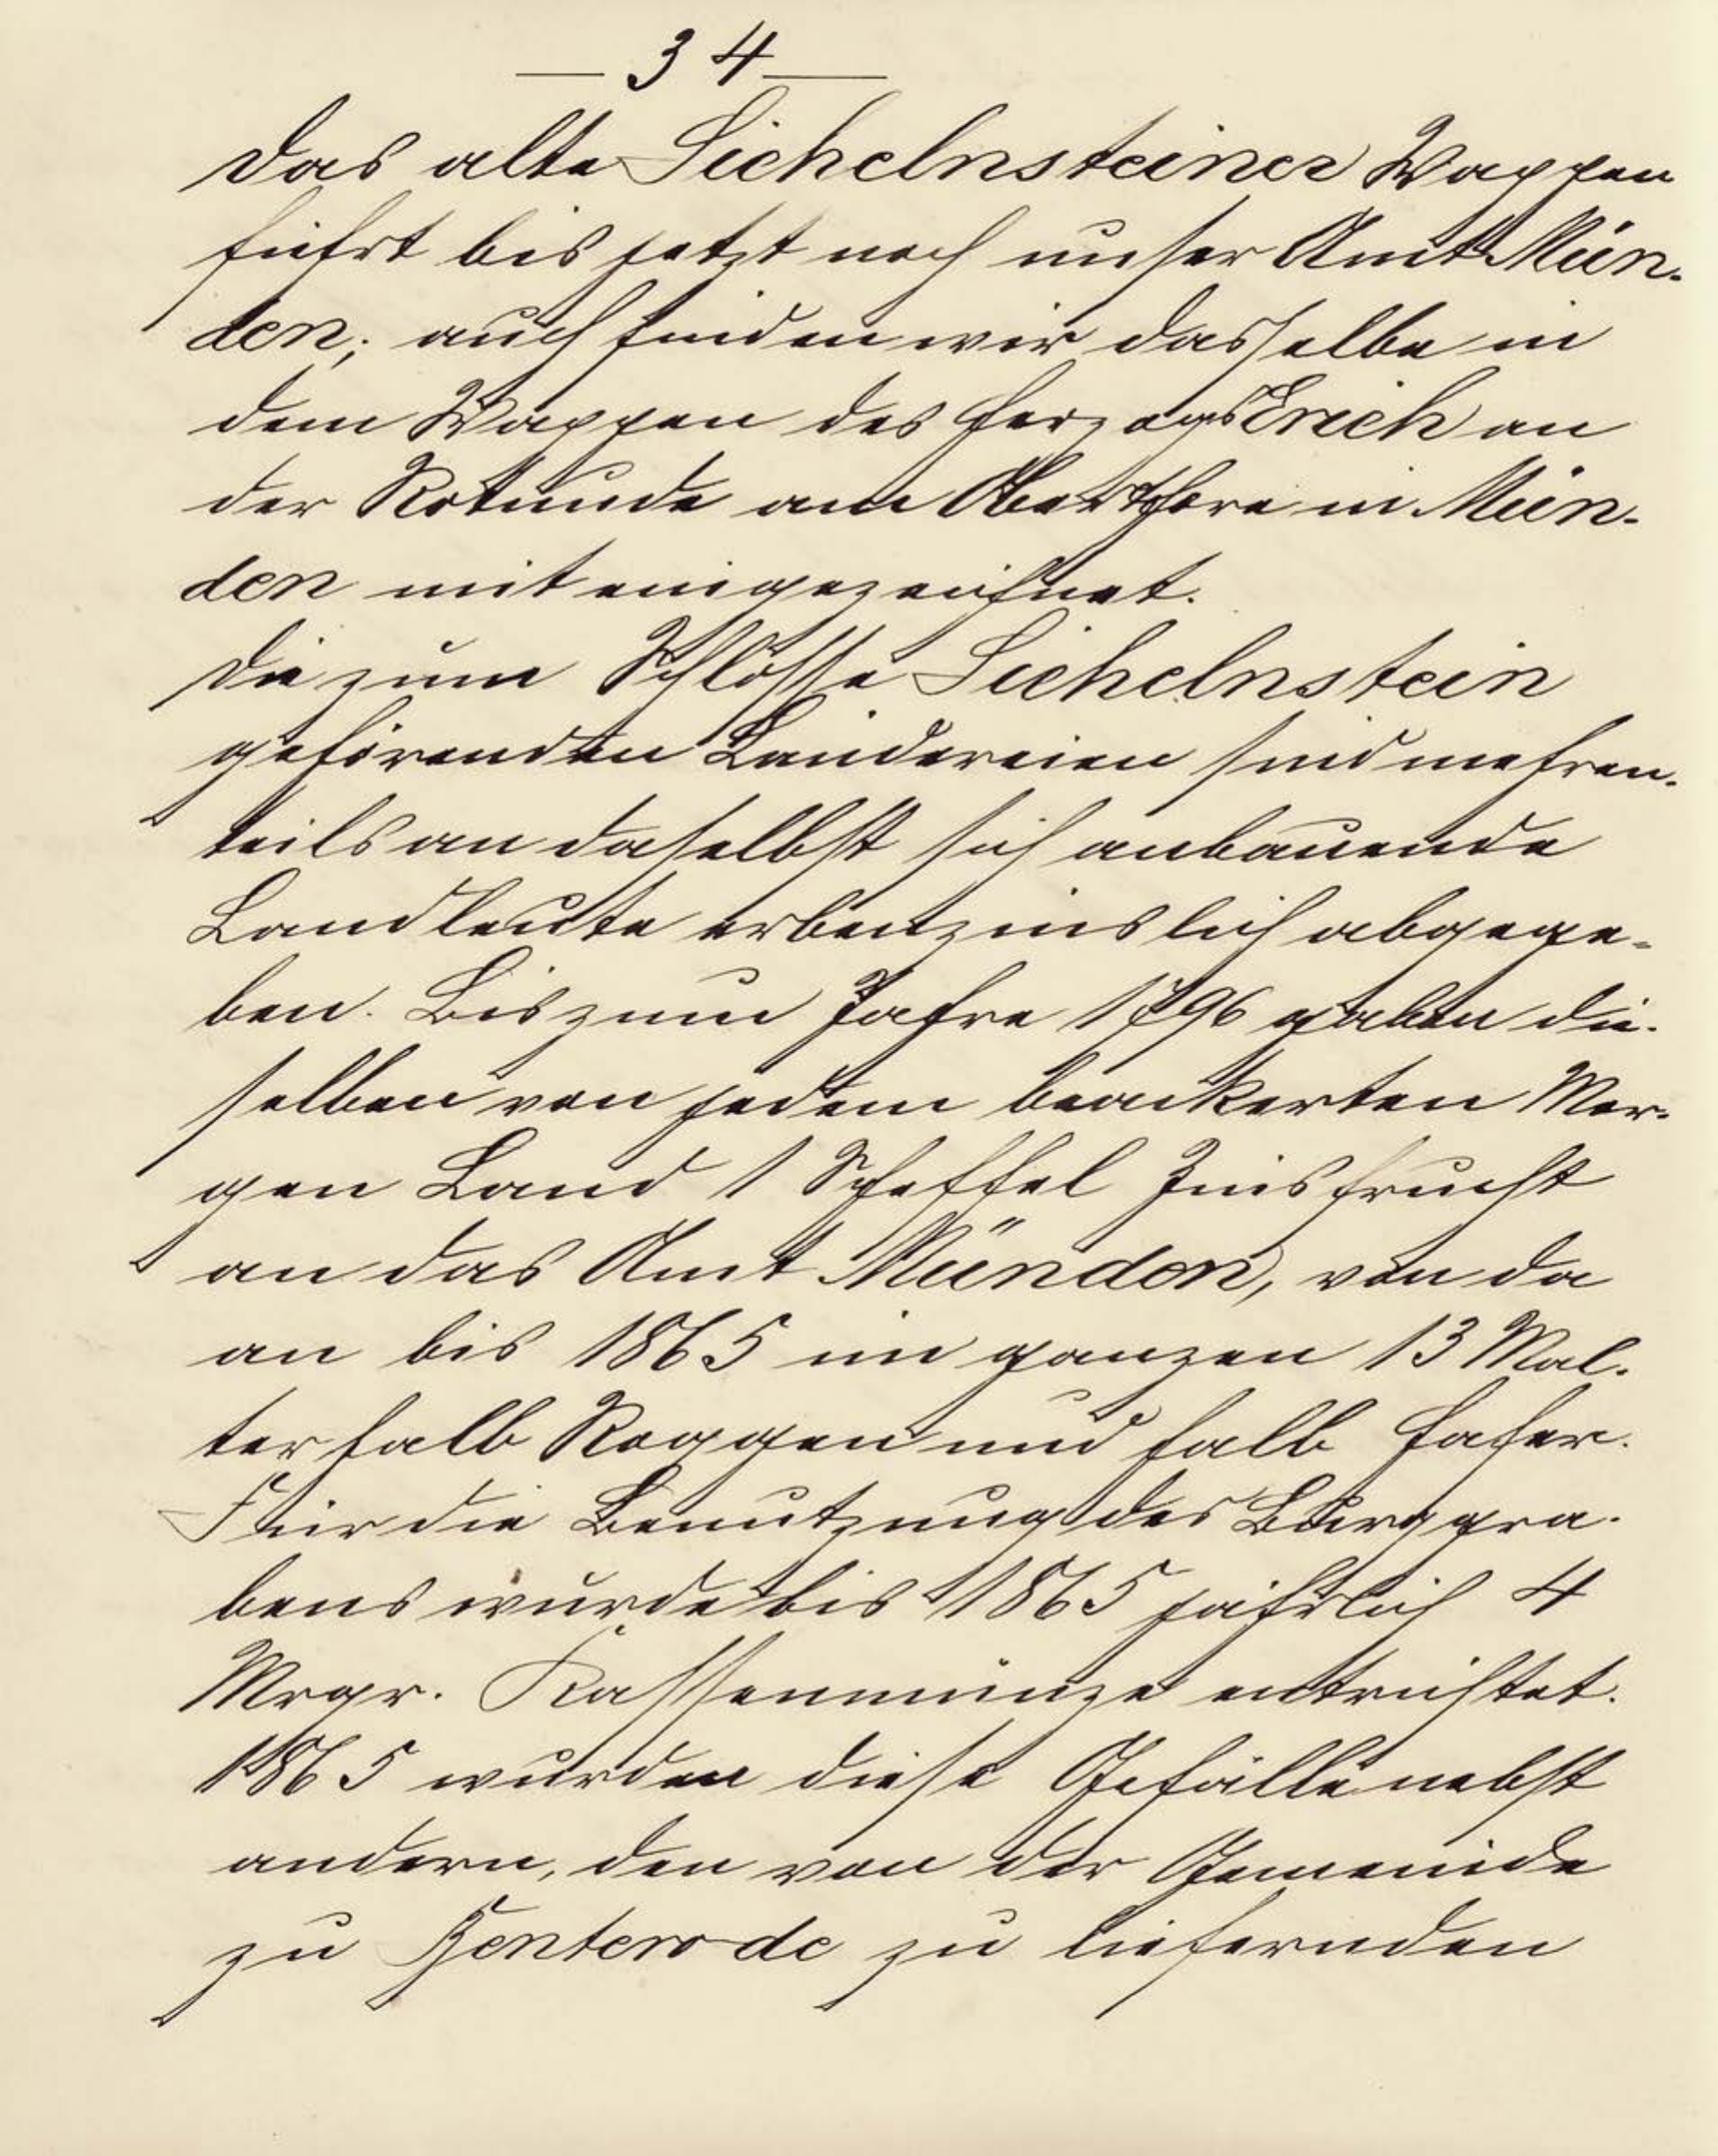 — 34 —
Das alte Sichelnsteiner Wappen
führt bis jetzt noch unser Amt Mün-
den; auch finden wir dasselbe in
dem Wappen des Herzogs Erich an
der Rotunde am Oberthore in Mün-
den mit eingezeichnet.
Die zum Schlosse Sichelnstein
gehörenden Ländereien sind mehren-
teils an daselbst sich anbauende
Landleute erbenzinslich abgege-
ben. Bis zum Jahre 1796 gaben die-
selben von jedem beackerten Mor-
gen Land 1 Scheffel Zinsfrucht
an das Amt Münden, von da
an bis 1865 im ganzen 13 Mal-
ter halb Roggen und halb Hafer.
Für die Benutzung des Burggra-
bens wurde bis 1865 jährlich 4
Mrgr. Kassenmünze entrichtet.
1865 wurden diese Gefälle nebst
andern, den von der Gemeinde
zu Benterode zu liefernden